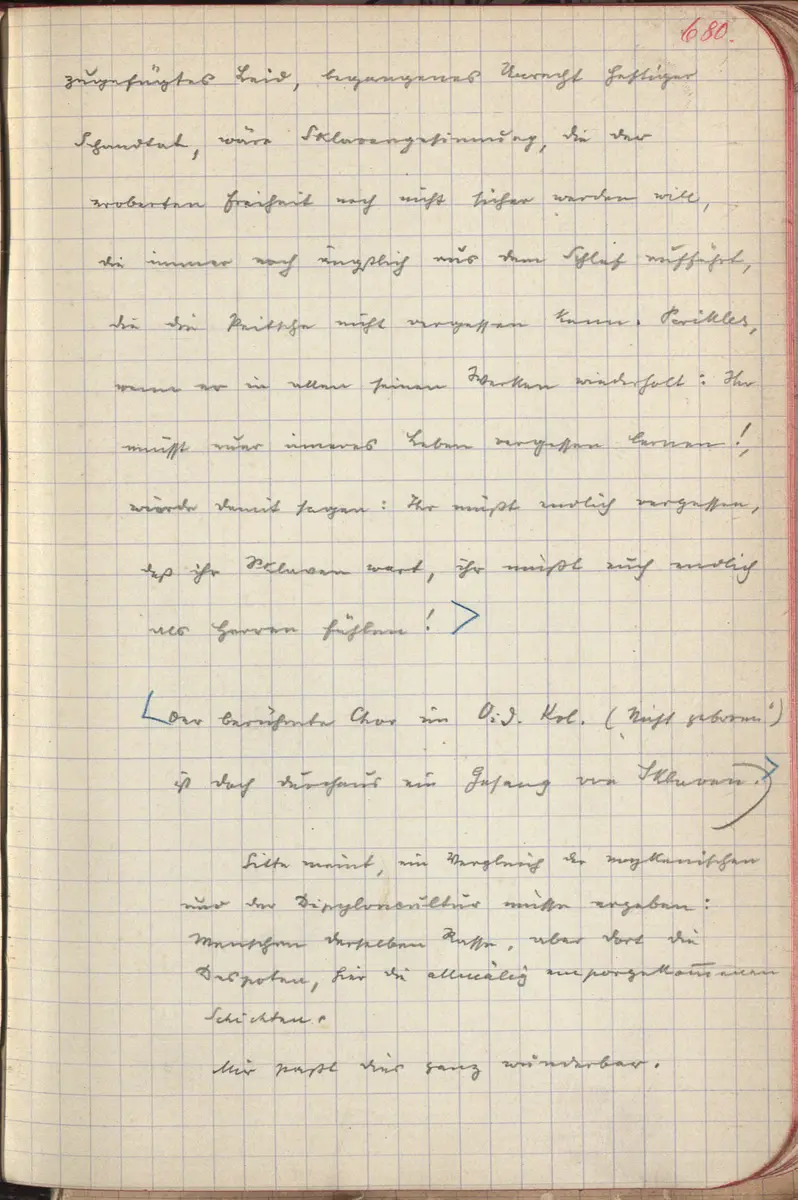 680.
zugefügtes Leid, begangenes Unrecht heftiger
Schandtat, wäre Sklavengesinnung, die der
eroberten Freiheit noch nicht sicher werden will,
die immer noch ängstlich aus dem Schlaf auffährt,
die die Peitsche nicht vergessen kann. Perikles,
wenn er in allen seinen Werken wiederholt: Ihr
müsst euer inneres Leben vergessen lernen!,
würde damit sagen: Ihr müßt endlich vergessen,
daß ihr Sklaven wart, ihr müßt euch endlich
als Herren fühlen!
Der berühmte Chor im Oid. Kol. („Nicht geboren“)
ist doch durchaus ein Gesang von Sklaven.)
meint, ein Vergleich der mykenischen
und der Dipyloncultur müsse ergeben:
Menschen derselben Rasse, aber dort die
Despoten, hier die allmälig emporgekommenen
Schichten.
Mir paßt dies ganz wunderbar.